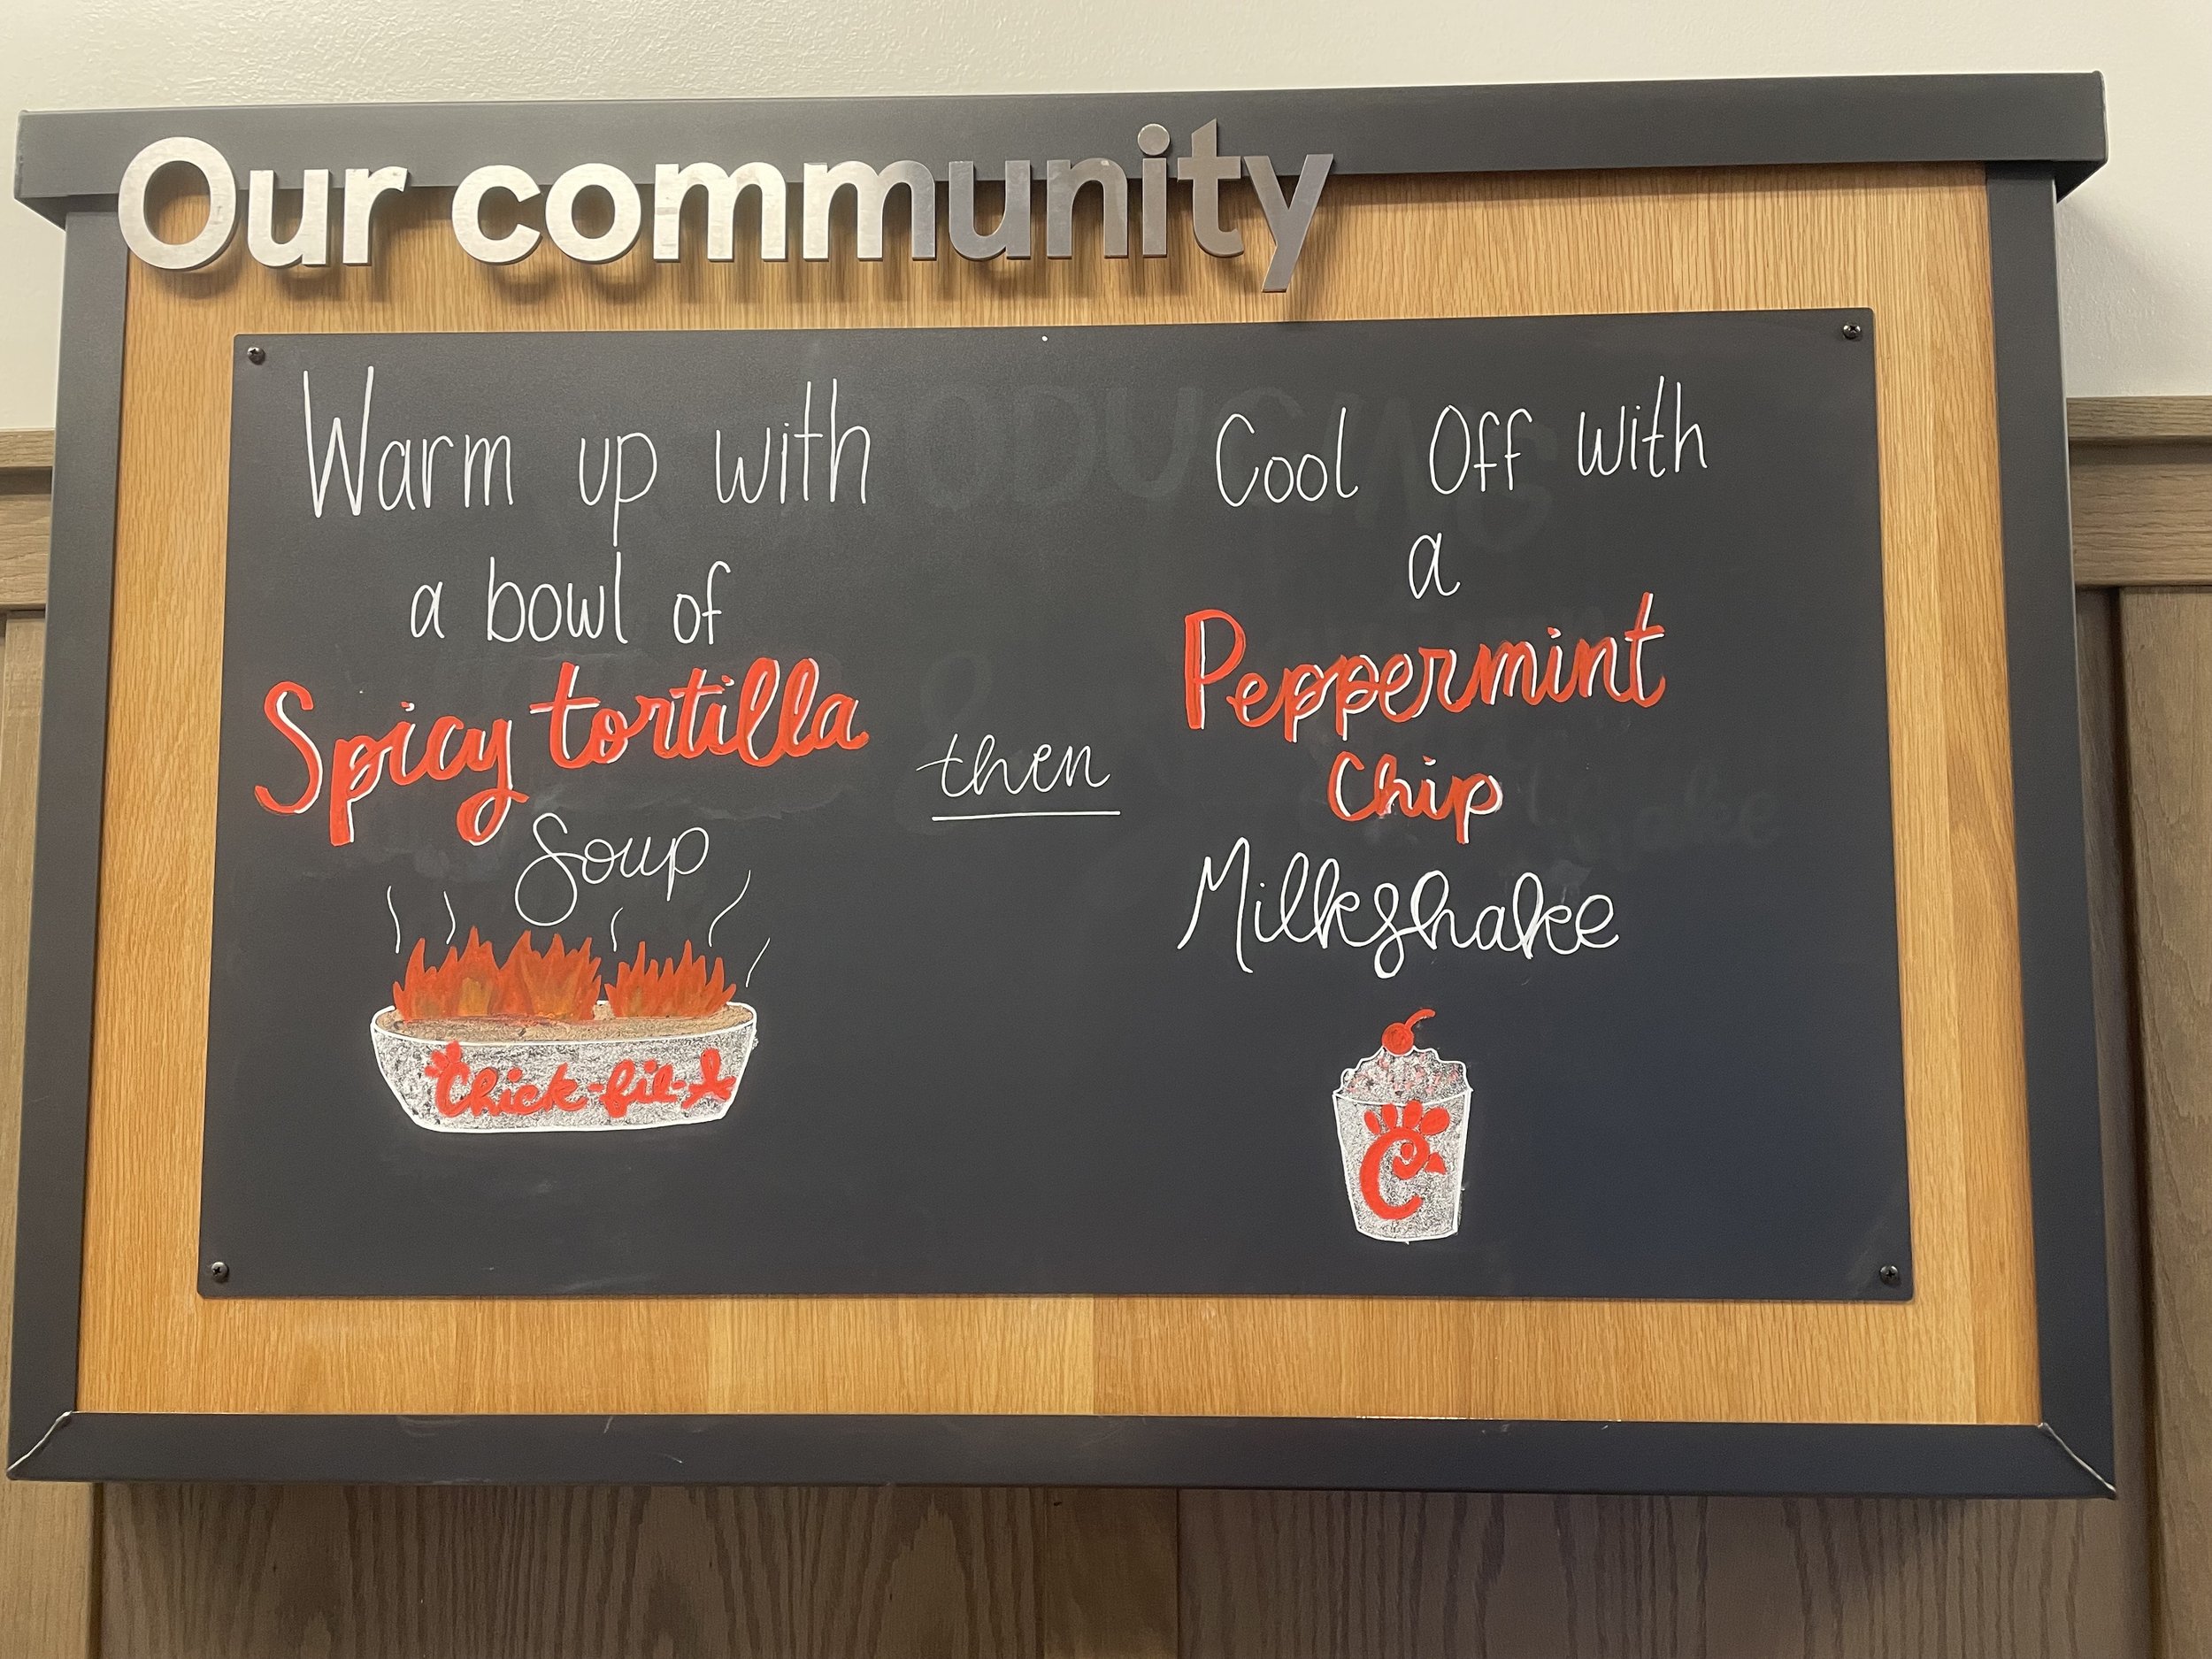 Our community
Warm up with
a bowl of
Spicy tortilla
Soup
Chick-fil-A
then
Cool Off with
a
Peppermint
Chip
Milkshake
C